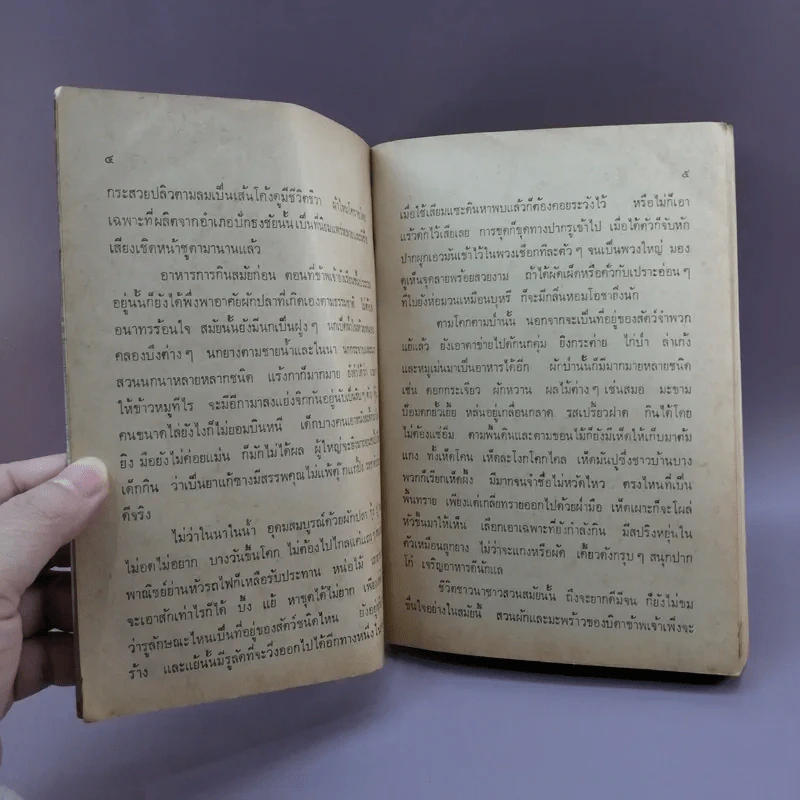 ๔
กระสวยปลิวตามลมเป็นเส้นโค้งดูมีชีวิตชีวา ผ้าไหม
เฉพาะที่ผลิตจากอำเภอปักธงชัยนั้นเป็นที่นิยม
เสียงเชิดหน้าชูตามานานแล้ว
อาหารการกินสมัยก่อน ตอนที่ข้าพเจ้ายัง
อยู่นั้นก็ยังได้พึ่งพาอาศัยผักปลาที่เกิดเองตามธรรมชาติ ไม่ต้อง
อนาทรร้อนใจ สมัยนั้นยังมีนกเป็นฝูงๆ นกเป็ดน้ำ
คลองบึงต่างๆ นกยางตามชายน้ำและในนา นกกระจาบ
สวนนกนาหลายหลากชนิด แร้งกาก็มากมาย
ให้ข้าวหมูทีไร จะมีอีกามาลงแย่งจิกกันอยู่นับเป็นสิบๆ ตัว
คนขนาดไล่ยังไงก็ไม่ยอมบินหนี เด็กบางคนเอาหนังสติ๊ก
ยิง มือยังไม่ค่อยแม่น ก็มักไม่ได้ผล ผู้ใหญ่จะยิง
เด็กกิน ว่าเป็นยาแก้ซางมีสรรพคุณไม่แพ้ตุ๊กแกย่าง
ดีจริง
ไม่ว่าในนาในน้ำ อุดมสมบูรณ์ด้วยผักปลา กุ้ง
ไม่อดไม่อยาก บางวันขึ้นโคก ไม่ต้องไปไกลแค่
พาณิชย์ย่านหัวรถไฟก็เหลือรับประทาน หน่อไม้
จะเอาสักเท่าไรก็ได้ บึ้ง แย้ หาขุดได้ไม่ยาก เพียง
ว่ารูลักษณะไหนเป็นที่อยู่ของสัตว์ชนิดไหน ยังอยู่หรือ
ร้าง และแย้นั้นมีรูลัดที่จะวิ่งออกไปได้อีกทางหนึ่ง
๕
เมื่อใช้เสียมแซะค้นหาพบแล้วก็ต้องคอยระวังไว้ หรือไม่ก็เอา
แร้วดักไว้เสียเลย การขุดก็ขุดทางปากรูเข้าไป เมื่อได้ตัวก็จับหัก
ปากผูกเอวมันเข้าไว้ในพวงเชือกทีละตัวๆ จนเป็นพวงใหญ่ มอง
ดูเห็นจุดลายพร้อยสวยงาม ถ้าได้ผัดเผ็ดหรือคั่วกับเปราะอ่อนๆ
ที่ใบยังห่อมวนเหมือนบุหรี่ ก็จะมีกลิ่นหอมโอชายิ่งนัก
ตามโคกตามป่านั้น นอกจากจะเป็นที่อยู่ของสัตว์จำพวก
แย้แล้ว ยังเอาตาข่ายไปดักนกคุ่ม ยิงกระต่าย ไก่ป่า ล่าเก้ง
และหมูเม่นมาเป็นอาหารได้อีก ผักป่านั้นก็มีมากมายหลายชนิด
เช่น ดอกกระเจียว ผักหวาน ผลไม้ต่างๆ เช่นสมอ มะขาม
ป้อมตกยั้วเยี้ย หล่นอยู่เกลื่อนกลาด รสเปรี้ยวฝาด กินได้โดย
ไม่ต้องแช่อิ่ม ตามพื้นดินและตามขอนไม้ก็ยังมีเห็ดให้เก็บมาต้ม
แกง ทั้งเห็ดโคน เห็ดละโงกโคกไคล เห็ดมันปูซึ่งชาวบ้านบาง
พวกก็เรียกเห็ดผึ้ง มีมากจนจำชื่อไม่หวัดไหว ตรงไหนที่เป็น
พื้นทราย เพียงแต่เกลี่ยทรายออกไปด้วยฝ่ามือ เห็ดเผาะก็จะโผล่
หัวขึ้นมาให้เห็น เลือกเอาเฉพาะที่ยังกำลังกิน มีสปริงหยุ่นใน
ตัวเหมือนลูกยาง ไม่ว่าจะแกงหรือผัด เคี้ยวดังกรุบๆ สนุกปาก
โก๋ เจริญอาหารดีนักแล
ชีวิตชาวนาชาวสวนสมัยนั้น ถึงจะยากดีมีจน ก็ยังไม่ขม
ขื่นใจอย่างในสมัยนี้ สวนผักและมะพร้าวของบิดาข้าพเจ้าเพิ่งจะ